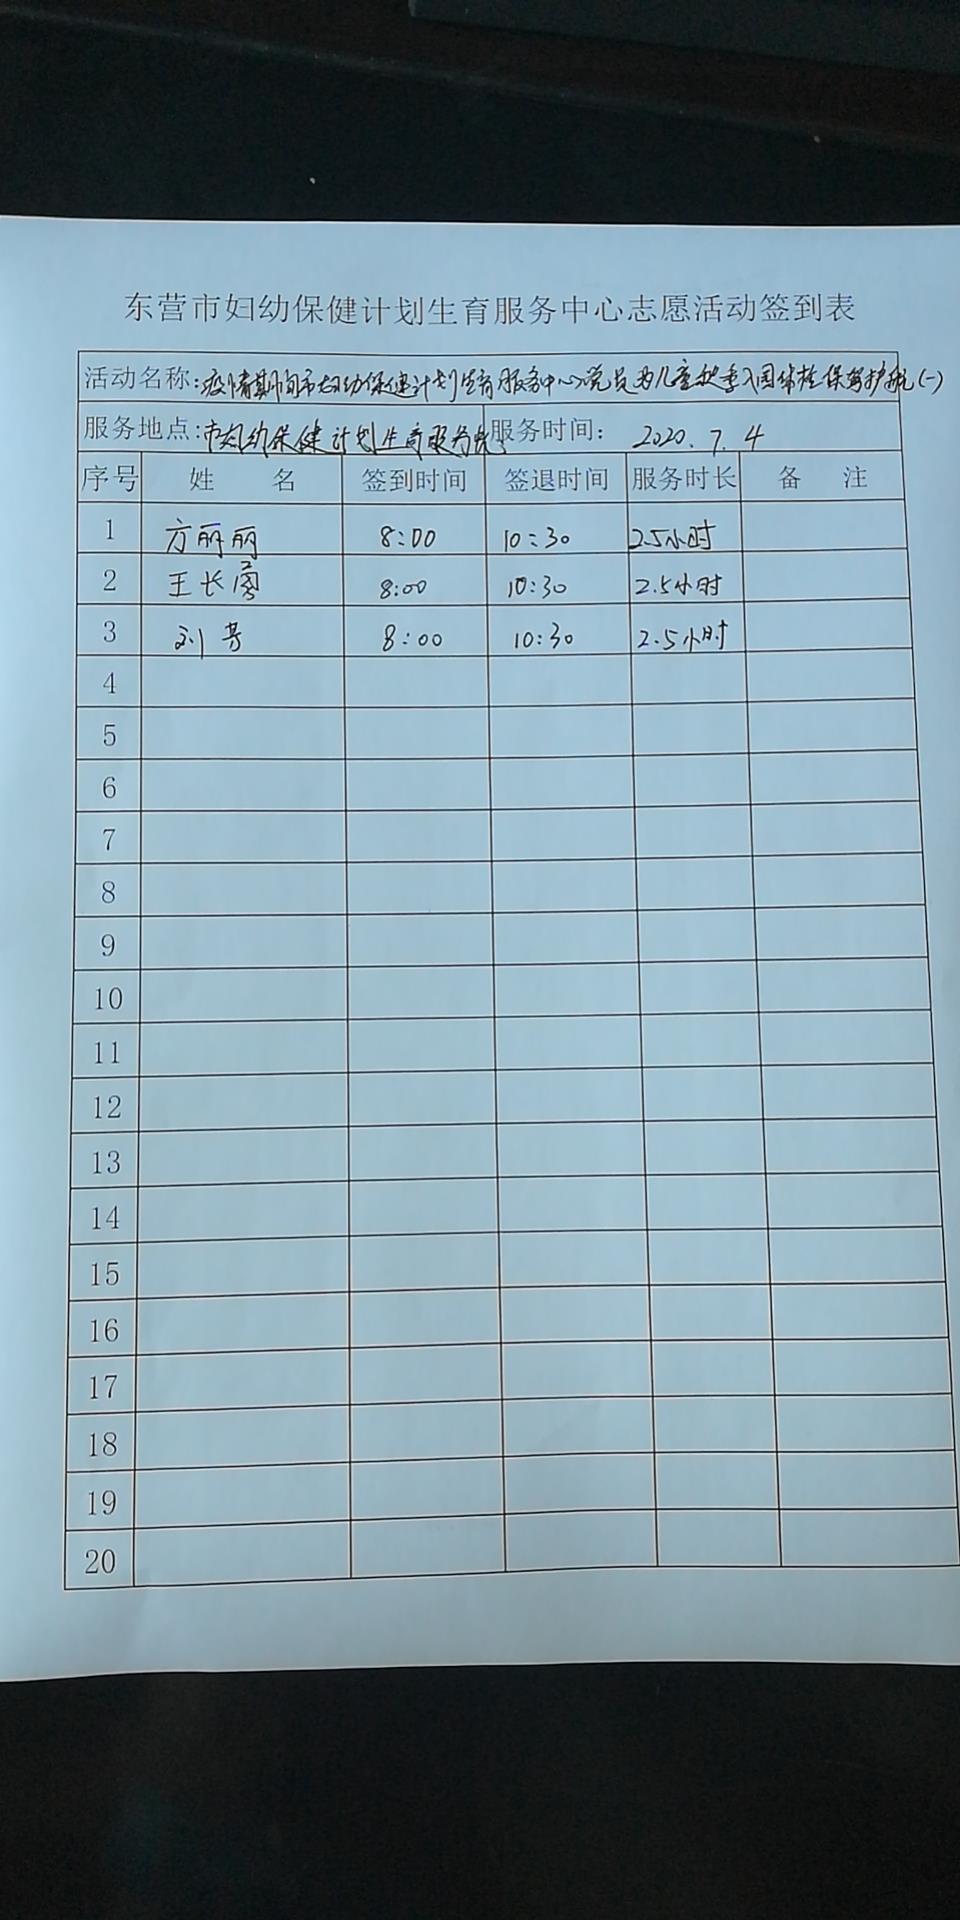 东营市妇幼保健计划生育服务中心志愿活动签到表
活动名称:疫情期间市妇幼保健计划生育服务中心党员为儿童秋季入园体检保驾护航(一)
服务地点:市妇幼保健计划生育服务 服务时间: 2020.7.4
序号 姓 名 签到时间 签退时间 服务时长 备 注
1 方丽丽 8:00 10:30 2.5小时
2 王长 8:00 10:30 2.5小时
3 刘芳 8:00 10:30 2.5小时
4
5
6
7
8
9
10
11
12
13
14
15
16
17
18
19
20